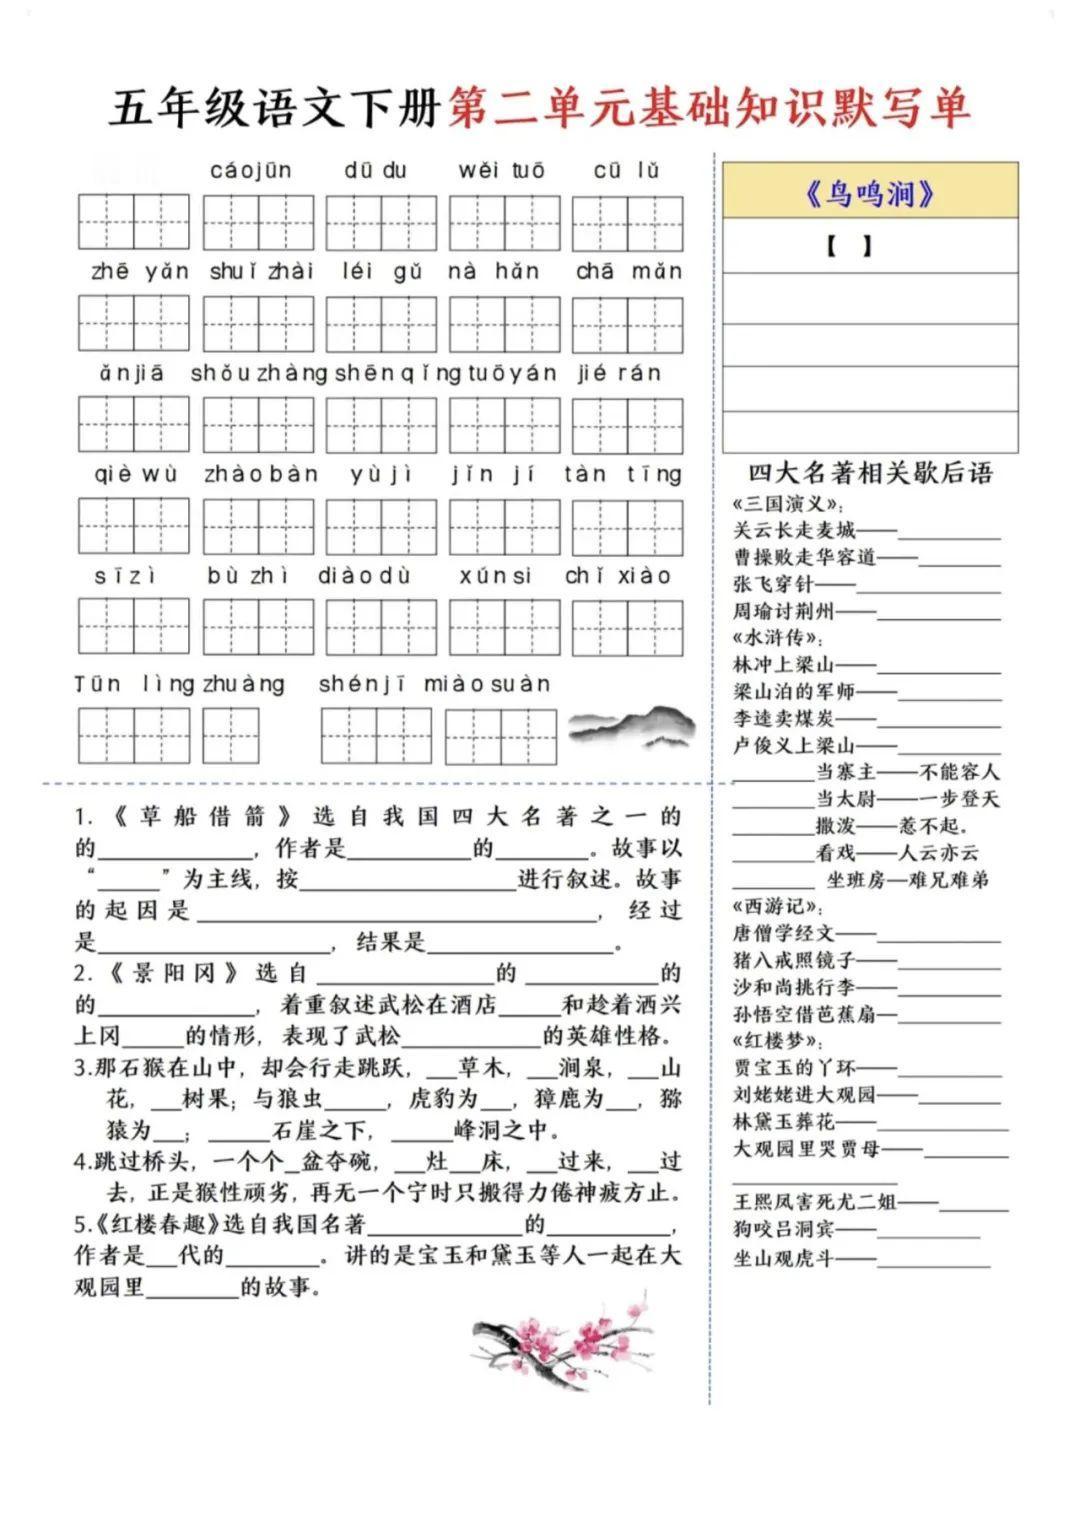 五年级语文下册第二单元基础知识默写单
cáojūn dū du wěi tuō cū lǔ
zhē yǎn shuǐ zhài léi gǔ nà hǎn chā mǎn
ǎnjiā shǒuzhàng shēnqǐng tuōyán jié rán
qiè wù zhàobàn yùjì jǐn jí tàn tīng
sīzì bùzhì diàodù xúnsi chǐ xiào
Tūn lìng zhuàng shénjī miàosuàn
1.《草船借箭》选自我国四大名著之一的
的____________，作者是__________的________。故事以
“_____”为主线，按__________________进行叙述。故事
的起因是______________________________，经过
是__________________，结果是______________。
2.《景阳冈》选自______________的__________的
的____________，着重叙述武松在酒店_____和趁着酒兴
上冈_____的情形，表现了武松___________的英雄性格。
3.那石猴在山中，却会行走跳跃，___草木，___涧泉，___山
花，___树果；与狼虫_____，虎豹为___，獐鹿为___，猕
猿为___；_____石崖之下，_____峰洞之中。
4.跳过桥头，一个个_盆夺碗，___灶___床，___过来，___过
去，正是猴性顽劣，再无一个宁时只搬得力倦神疲方止。
5.《红楼春趣》选自我国名著____________的__________，
作者是___代的________。讲的是宝玉和黛玉等人一起在大
观园里________的故事。
《鸟鸣涧》
【 】
四大名著相关歇后语
《三国演义》：
关云长走麦城——__________
曹操败走华容道——________
张飞穿针——______________
周瑜讨荆州——____________
《水浒传》：
林冲上梁山——____________
梁山泊的军师——__________
李逵卖煤炭——____________
卢俊义上梁山——__________
________当寨主——不能容人
________当太尉——一步登天
________撒泼——惹不起。
________看戏——人云亦云
________ 坐班房—难兄难弟
《西游记》：
唐僧学经文——____________
猪八戒照镜子——__________
沙和尚挑行李——__________
孙悟空借芭蕉扇——________
《红楼梦》：
贾宝玉的丫环——__________
刘姥姥进大观园——________
林黛玉葬花——____________
大观园里哭贾母——________
________________
王熙凤害死尤二姐——_______
狗咬吕洞宾——__________
坐山观虎斗——___________